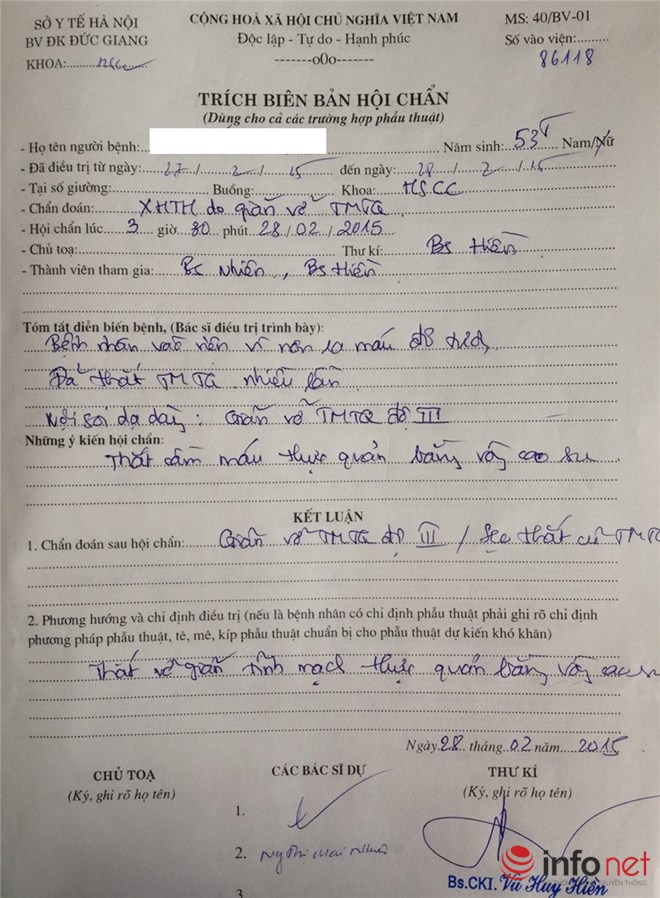 SỞ Y TẾ HÀ NỘI
BV ĐK ĐỨC GIANG
KHOA:
CỘNG HOÀ XÃ HỘI CHỦ NGHĨA VIỆT NAM
Độc lập - Tự do - Hạnh phúc
-------o0o-------
MS: 40/BV-01
Số vào viện:
86118
TRÍCH BIÊN BẢN HỘI CHẨN
(Dùng cho cả các trường hợp phẫu thuật)
- Họ tên người bệnh: Năm sinh: 53T Nam/Nữ
- Đã điều trị từ ngày: 27/2/15 đến ngày: 28/2/15
- Tại số giường: Buồng: Khoa: HSCC
- Chẩn đoán: XHTH do giãn vỡ TMTQ
- Hội chẩn lúc 3 giờ 30 phút 28/02/2015
- Chủ toạ: Thư kí: Bs Hiền
- Thành viên tham gia: Bs Nhiên, Bs Hiền
Tóm tắt diễn biến bệnh, (Bác sĩ điều trị trình bày):
Bệnh nhân vào viện vì nôn ra máu đỏ
Đã thắt TMTQ nhiều lần
Nội soi dạ dày: Giãn vỡ TMTQ độ III
Những ý kiến hội chẩn:
Thắt cầm máu thực quản bằng vòng cao su
KẾT LUẬN
1. Chẩn đoán sau hội chẩn: Giãn vỡ TMTQ độ III / Sẹo thắt cũ TMTQ
2. Phương hướng và chỉ định điều trị (nếu là bệnh nhân có chỉ định phẫu thuật phải ghi rõ chỉ định
phương pháp phẫu thuật, tê, mê, kíp phẫu thuật chuẩn bị cho phẫu thuật dự kiến khó khăn)
Thắt vỡ giãn tĩnh mạch thực quản bằng vòng cao su
Ngày 28 tháng 02 năm 2015
CHỦ TOẠ
(Ký, ghi rõ họ tên)
CÁC BÁC SĨ DỰ
1.
2.
3
THƯ KÍ
(Ký, ghi rõ họ tên)
Bs.CKI. Vũ Huy Hiền
infonet